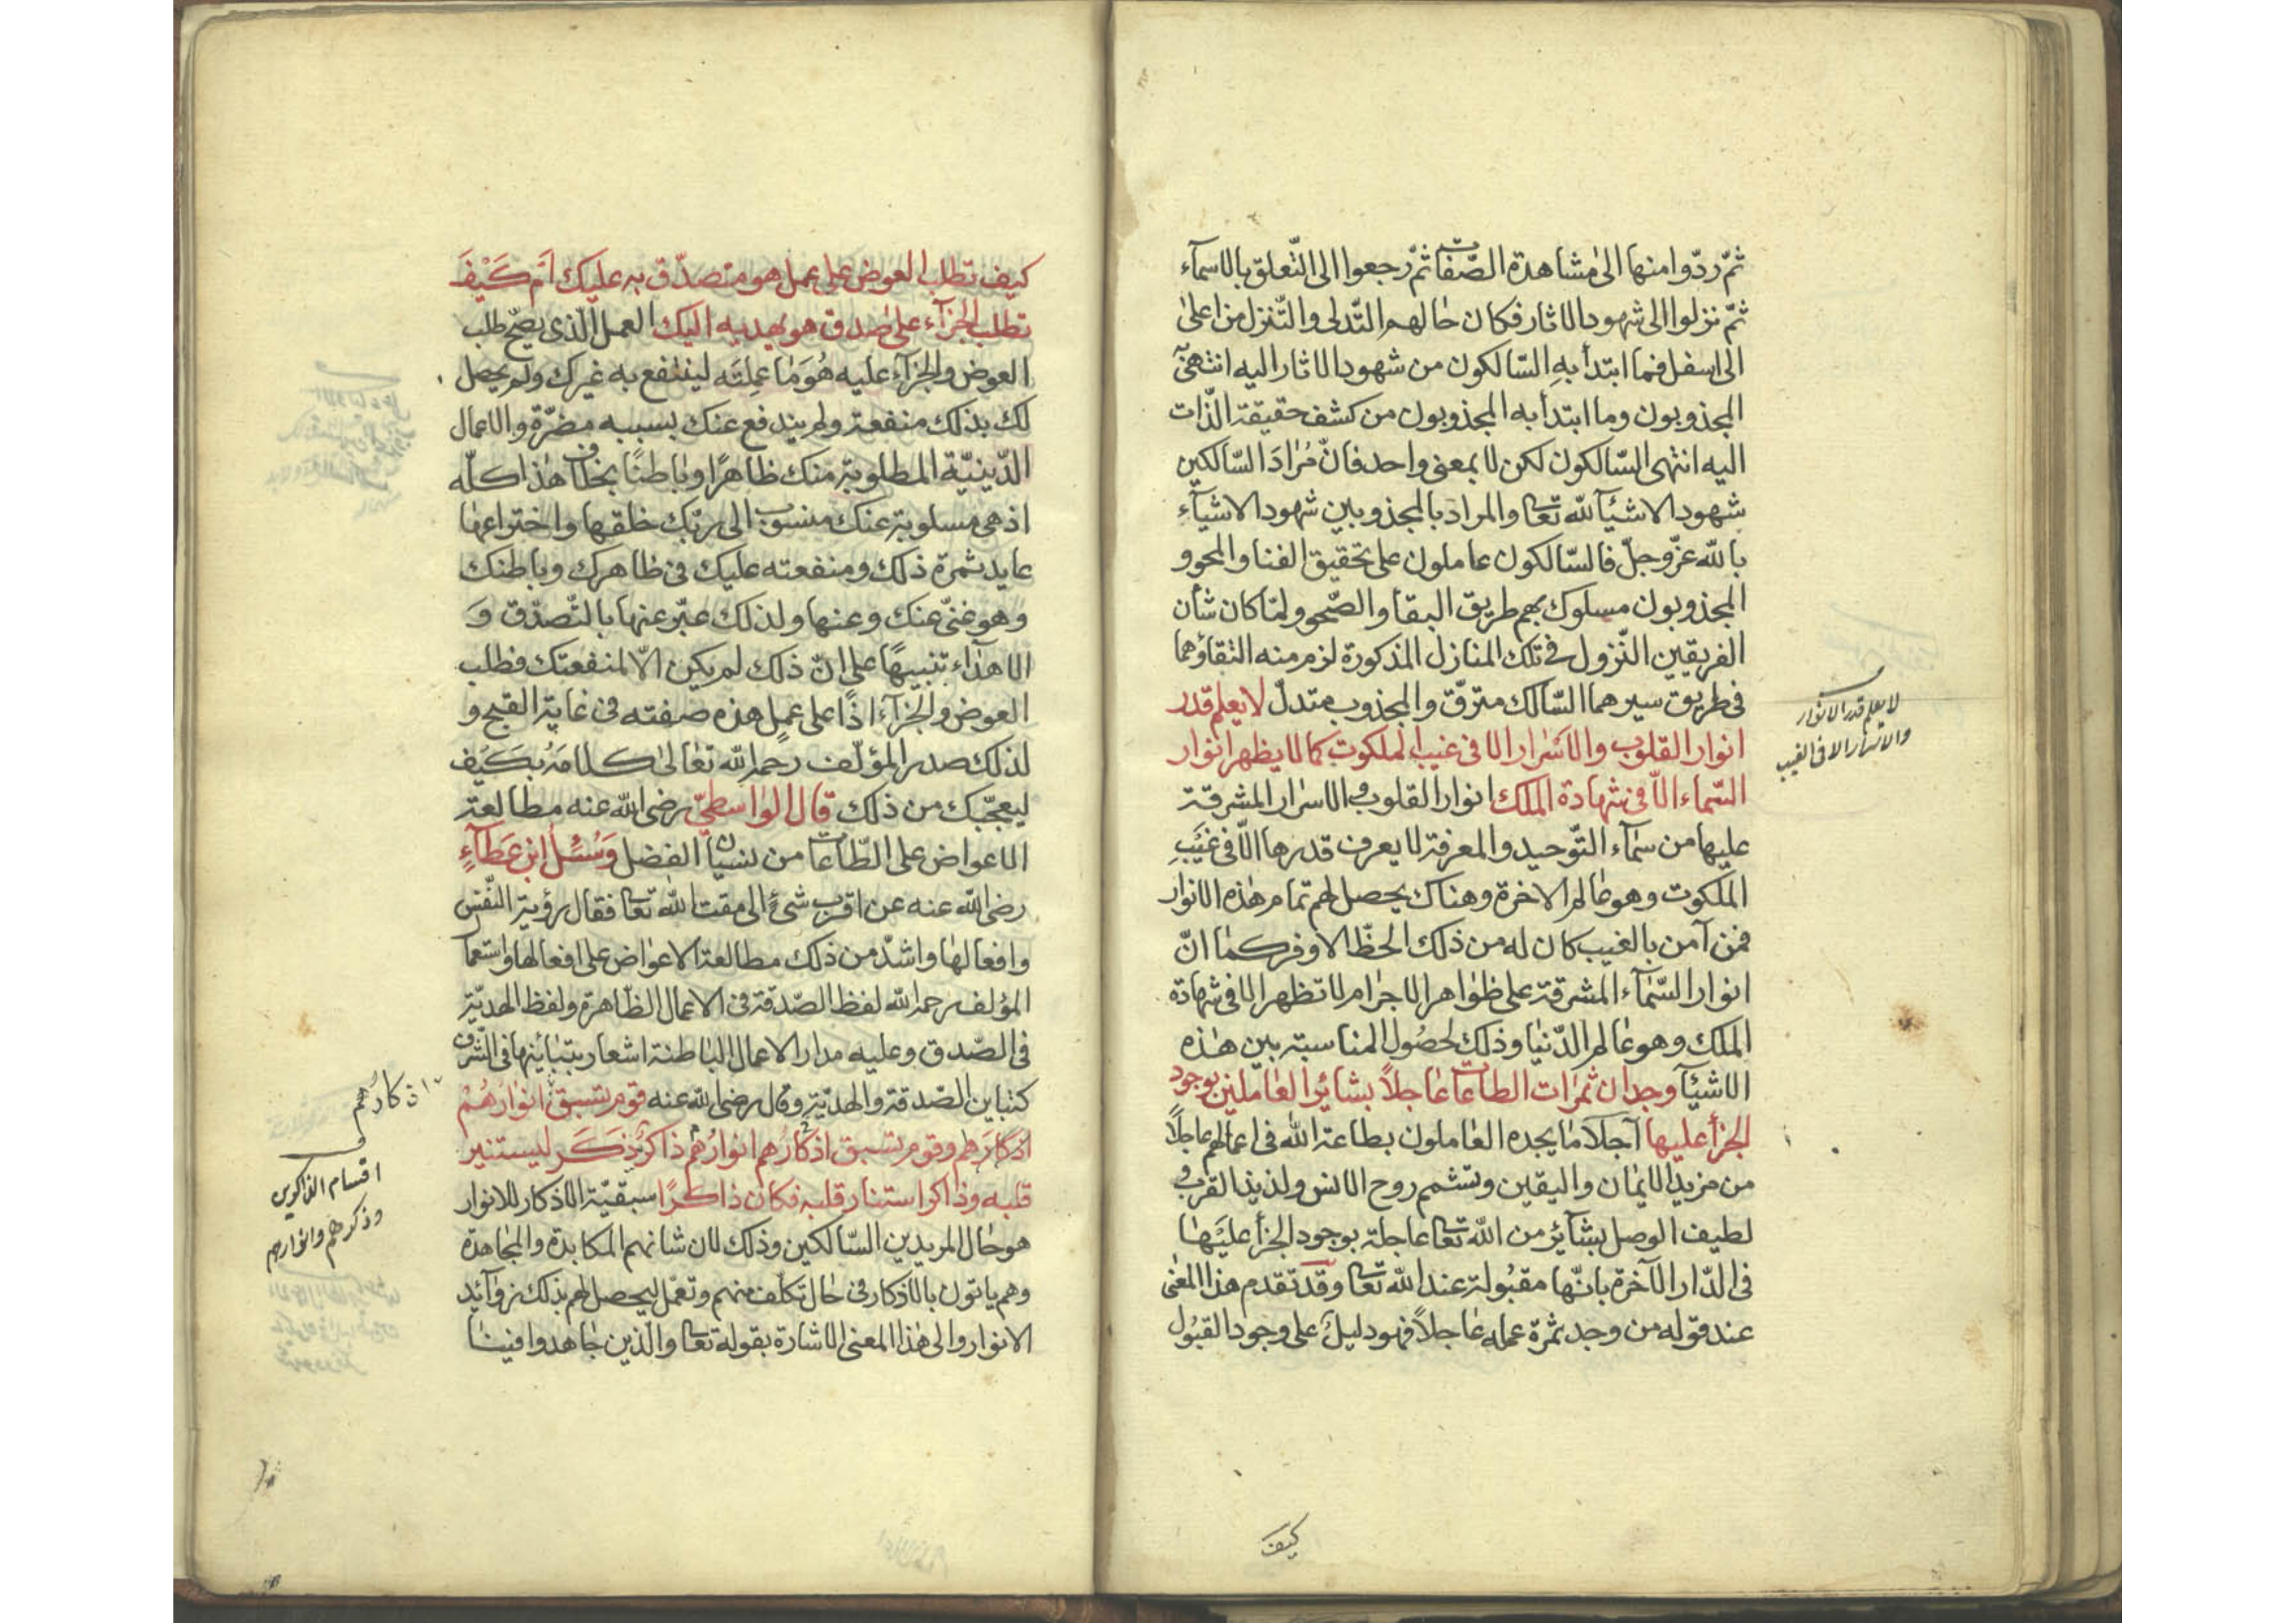 ثمّ ردّوا منها الى مشاهدة الصّفات ثمّ رجعوا الى التّعلق بالاسمآء
ثمّ نزلوا الى شهود الاثار فكان حالهم التّدلى والتّنزل من اعلى
الى اسفل فما ابتدأ به السّالكون من شهود الاثار اليه انتهى
المجذوبون وما ابتدأ به المجذوبون من كشف حقيقة الذّات
اليه انتهى السّالكون لكن لا بمعنى واحد فانّ مُرادَ السّالكين
شهود الاشيآ لله تعالى والمراد بالمجذوبين شهود الاشيآء
بالله عزّ وجلّ فالسّالكون عاملون على تحقيق الفنا والمحو و
المجذوبون مسلوك بهم طريق البقآ والصّحو ولمّا كان شأن
الفريقين النّزول فى تلك المنازل المذكورة لزم منه التقاؤهما
فى طريق سيرهما السّالك مترقّ والمجذوب متدلّ لا يعلم قدر
انوار القلوب والاسرار الا فى غيب الملكوت كما لا يظهر انوار
السّماء الاّ فى شهادة الملك انوار القلوب والاسرار المشرقة
عليها من سمآء التّوحيد والمعرفة لا يعرف قدرها الاّ فى غيَبِ
الملكوت وهو عالم الاخرة وهناك يحصل لهم تمام هذه الانوار
فمن آمن بالغيب كان له من ذلك الحظّ الاوفر كما انّ
انوار السّمآء المشرقة على ظواهر الاجرام لا تظهر الا فى شهادة
الملك وهو عالم الدّنيا وذلك لحصُول المناسبة بين هذه
الاشيآ وجدان ثمرات الطاعات عاجلاً بشائر العاملين بوجود
الجزآ عليها آجلا ما يجده العاملون بطاعة الله فى اعمالهم عاجلاً
من مزيد الايمان واليقين وتشمم روح الانس ولذيذ القرب و
لطيف الوصل بشآئر من الله تعالى عاجلة بوجود الجزآ عليَها
فى الدّار الآخرة بانّها مقبُولة عند الله تعالى وقد تقدم هذا المعنى
عند قوله من وجد ثمرة عمله عاجلاً فهو دليلٌ على وجود القبُول
لا يعلم قدر الانوار
والاسرار الا فى الغيب
كيف
كيف تطلب العوض على عمل هو متصدّق به عليك اَم كَيْفَ
تطلب الجزآء على صدق هو يهديه اليك العمل الّذى يصحّ طلب
العوض والجزآء عليه هُوَ ما عملتَه لينتفع به غيرك ولم يحصل
لك بذلك منفعة ولم يندفع عنك بسببه مضرّة والاعمال
الدّينيّة المطلوبة منك ظاهرًا وباطنًا بخلاف هذا كلّه
اذ هى مسلوبة عنك منسوبة الى ربّك خلقها واختراعها
عايد ثمرة ذلك ومنفعته عليك فى ظاهرك وباطنك
وهو غنىّ عنك وعنها ولذلك عبّر عنها بالتّصدّق وَ
الاهداء تنبيهًا على انّ ذلك لم يكن الاّ لمنفعتك فطلب
العوض والجزآء اذًا على عمل هذه صفته فى غاية القبح و
لذلك صدر المؤلّف رحمه الله تعالى كلامَهُ بكَيَف
ليعجّبك من ذلك قال الواسطىّ رضى الله عنه مطالعة
الاعواض على الطّاعات من نسيان الفضل وَسُئل ابن عَطآءٍ
رضى الله عنه عن اقرب شئ الى مقت الله تعالى فقال رؤية النّفس
وافعالها واشدّ من ذلك مطالعة الاعواض على افعالها واستعمال
المؤلف رحمه الله لفظ الصّدقة فى الاعمال الظاهرة ولفظ الهديّة
فى الصّدق وعليه مدار الاعمال الباطنة اشعار بتباينها فى الشّرف
كتباين الصّدقة والهديّة وقال رضى الله عنه قوم تسبق انوارهُمْ
اذكارَهم وقوم تسبق اذكارُهم انوارَهُم ذاكرٌ ذكَر ليستنير
قلبه وذاكر استنار قلبه فكان ذاكرًا سبقيّة الاذكار للانوار
هو حال المريدين السّالكين وذلك لان شانهم المكابدة والمجاهدة
وهم ياتون بالاذكار فى حال تكلّف منهم وتعمّل ليحصل لهم بذلك زوآئد
الانوار والى هذا المعنى الاشارة بقوله تعالى والّذين جاهدوا فينا
اذكارُهم
اقسام الذاكرين
وذكرهم وانوارهم